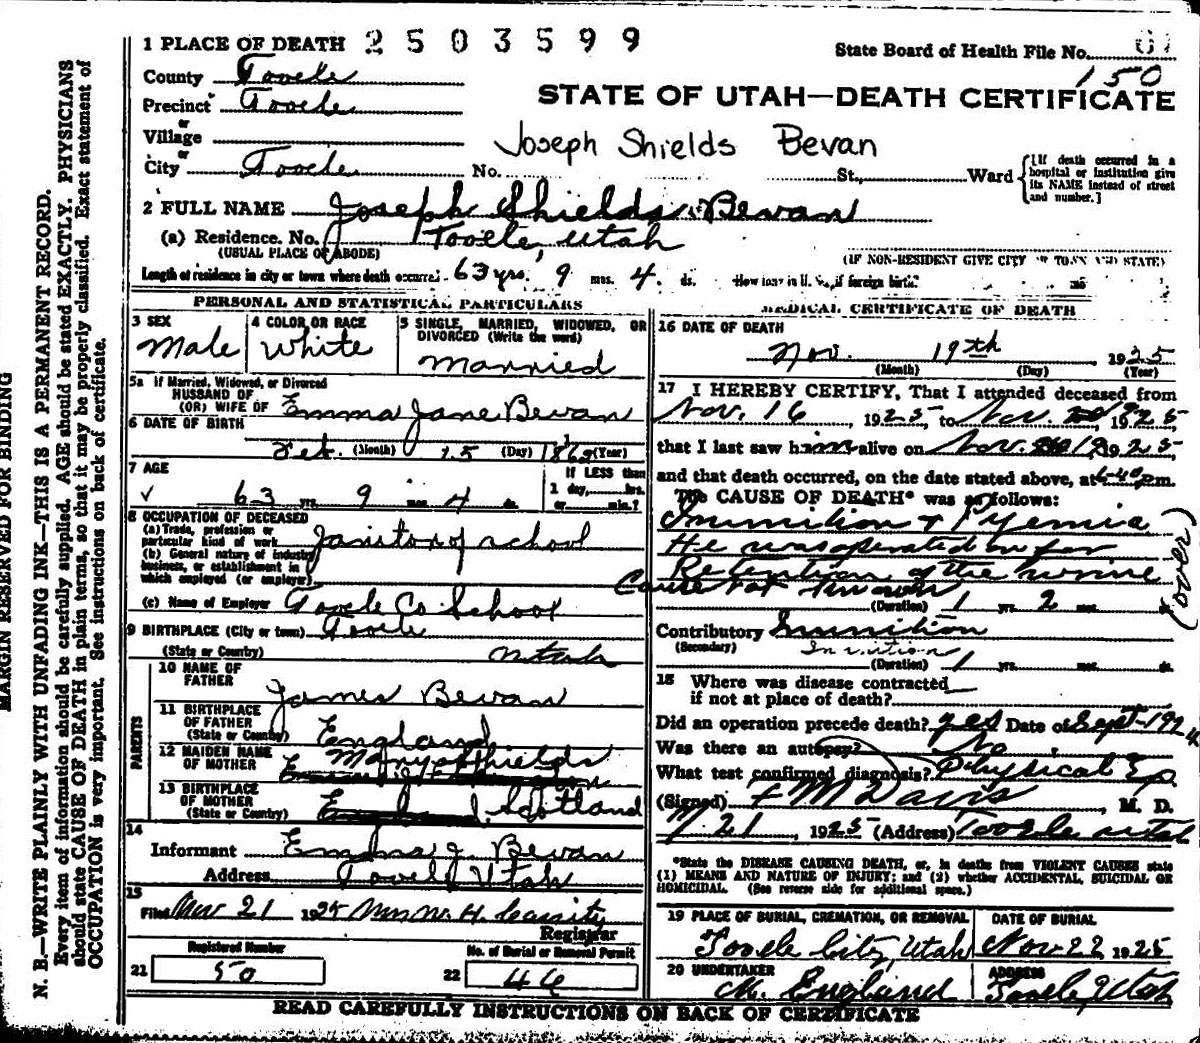 1 PLACE OF DEATH 2503599
State Board of Health File No. 150
County Tooele
Precinct Tooele
or
STATE OF UTAH—DEATH CERTIFICATE
Village
or
Joseph Shields Bevan
City Tooele No. St., Ward
{[If death occurred in a
hospital or institution give
its NAME instead of street
and number.]
2 FULL NAME Joseph Shields Bevan
(a) Residence. No. Tooele, Utah
(USUAL PLACE OF ABODE)
(IF NON-RESIDENT GIVE CITY OR TOWN AND STATE)
Length of residence in city or town where death occurred 63 yrs. 9 mos. 4 ds. How long in U. S., if foreign birth?
PERSONAL AND STATISTICAL PARTICULARS
3 SEX
Male
4 COLOR OR RACE
White
5 SINGLE, MARRIED, WIDOWED, OR
DIVORCED (Write the word)
Married
5a If Married, Widowed, or Divorced
HUSBAND OF
(OR) WIFE OF Emma Jane Bevan
6 DATE OF BIRTH
Feb. (Month) 15 (Day) 1862 (Year)
7 AGE
63 yrs. 9 mos. 4 ds.
If LESS than
1 day, hrs.
or min.?
8 OCCUPATION OF DECEASED
(a) Trade, profession or
particular kind of work Janitor of school
(b) General nature of industry
business, or establishment in
which employed (or employer)
(c) Name of Employer Tooele Co School
9 BIRTHPLACE (City or town) Tooele
(State or Country) Utah
PARENTS
10 NAME OF
FATHER James Bevan
11 BIRTHPLACE
OF FATHER
(State or Country) England
12 MAIDEN NAME
OF MOTHER Mary Shields
13 BIRTHPLACE
OF MOTHER
(State or Country) Scotland
14
Informant Emma J. Bevan
Address Tooele Utah
15
Filed Nov 21 1925 Mrs W. H. Cassity
Registrar
Registered Number
21 50
No. of Burial or Removal Permit
22 46
MEDICAL CERTIFICATE OF DEATH
16 DATE OF DEATH
Nov. 19th 1925
(Month) (Day) (Year)
17 I HEREBY CERTIFY, That I attended deceased from
Nov. 16, 1925, to Nov 1925,
that I last saw him alive on Nov. 19 1925,
and that death occurred, on the date stated above, at 6-40 p.m.
The CAUSE OF DEATH* was as follows:
Inunition & Pyemia
He was operated on for
Retention of the urine
Cause not known
(over)
(Duration) 1 yrs. 2 mos. ds.
Contributory Inunition
(Secondary) Inunition
(Duration) 1 yrs. mos. ds.
18 Where was disease contracted
if not at place of death?
Did an operation precede death? yes Date of Sept-1924
Was there an autopsy? No
What test confirmed diagnosis? Physical Ex
(Signed) F M Davis, M. D.
21, 1925 (Address) Tooele Utah
*State the DISEASE CAUSING DEATH, or, in deaths from VIOLENT CAUSES state
(1) MEANS AND NATURE OF INJURY; and (2) whether ACCIDENTAL, SUICIDAL OR
HOMICIDAL. (See reverse side for additional space.)
19 PLACE OF BURIAL, CREMATION, OR REMOVAL
Tooele City, Utah
DATE OF BURIAL
Nov 22 1925
20 UNDERTAKER
M. England
ADDRESS
Tooele, Utah
READ CAREFULLY INSTRUCTIONS ON BACK OF CERTIFICATE
MARGIN RESERVED FOR BINDING
N. B.—WRITE PLAINLY WITH UNFADING INK—THIS IS A PERMANENT RECORD.
Every item of information should be carefully supplied. AGE should be stated EXACTLY. PHYSICIANS
should state CAUSE OF DEATH in plain terms, so that it may be properly classified. Exact statement of
OCCUPATION is very important. See instructions on back of certificate.